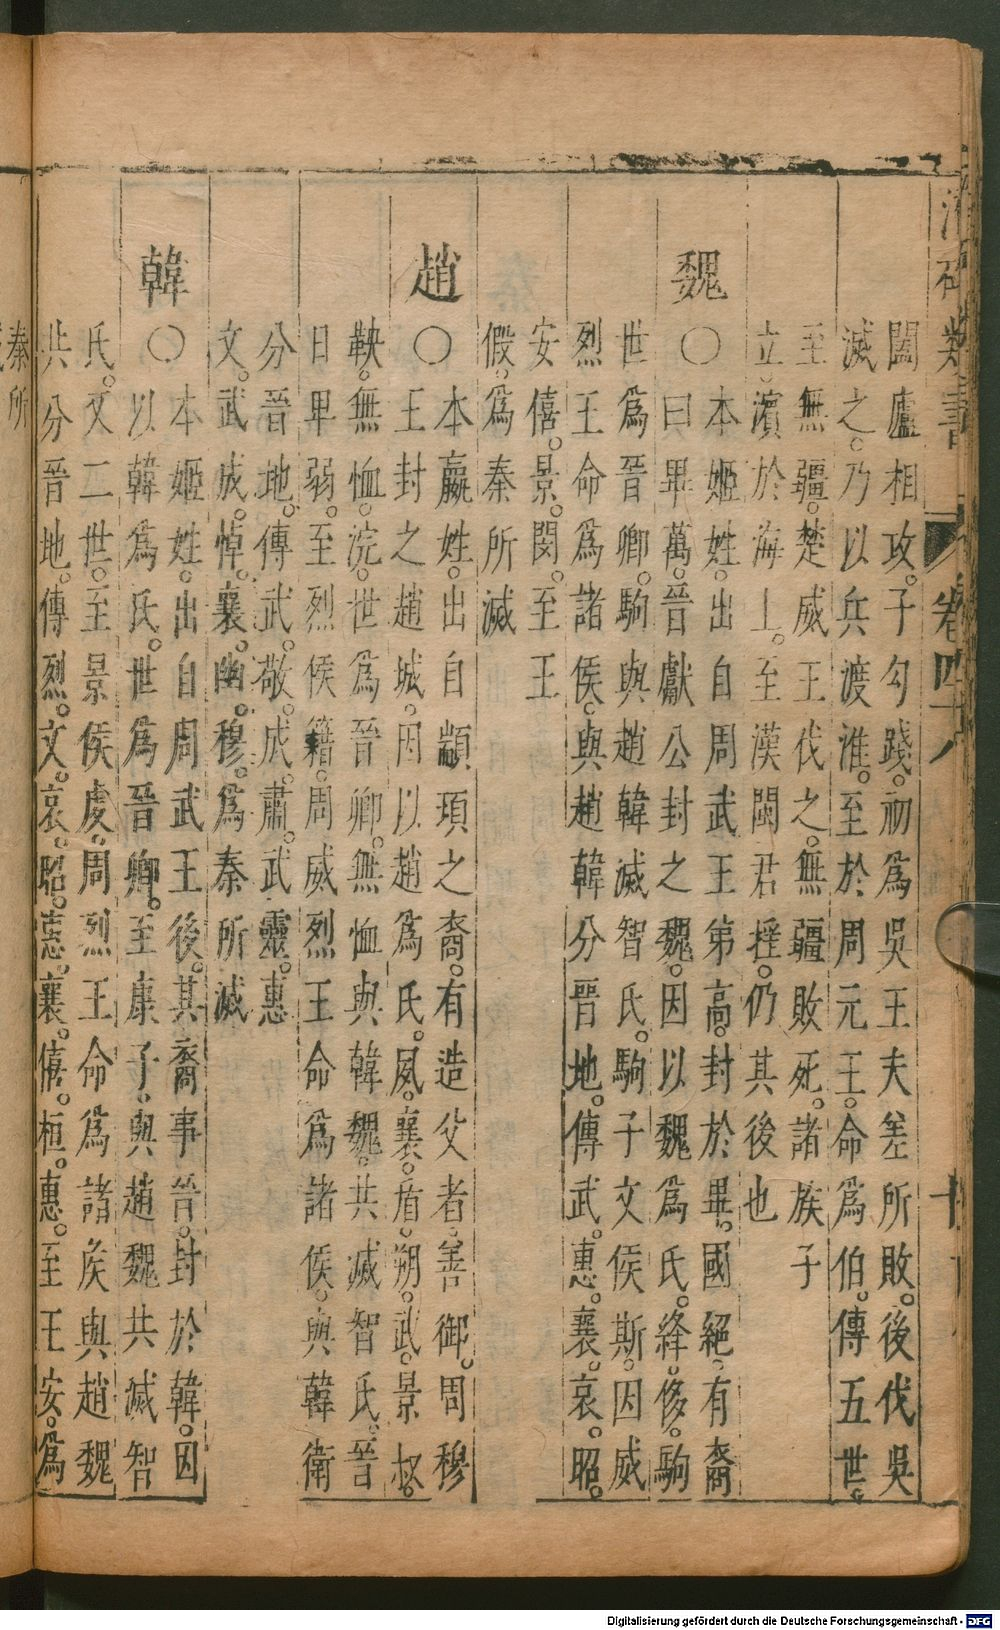 類書
卷四十八
闔廬相攻。子勾踐。初爲吳王夫差所敗。後伐吳
滅之。乃以兵渡淮。至於周元王。命爲伯。傳五世。
至無疆。楚威王伐之。無疆敗死。諸族子
立。濱於海上。至漢閩君搖。仍其後也
魏
○本姬姓。出自周武王第高。封於畢。國絕。有裔
曰畢萬。晉獻公封之魏。因以魏爲氏。絳。侈。駒
世爲晉卿。駒與趙韓滅智氏。駒子文侯斯。因威
烈王命爲諸侯。與趙韓分晉地。傳武。惠。襄。哀。昭。
安僖。景。閔。至王
假。爲秦所滅
趙
○本嬴姓。出自顓頊之裔。有造父者。善御。周穆
王封之趙城。因以趙爲氏。夙。襄。盾。朔。武。景叔。
鞅。無恤。浣。世爲晉卿。無恤與韓魏。共滅智氏。晉
日卑弱。至烈侯籍。周威烈王命爲諸侯。與韓衛
分晉地。傳武。敬。成。肅。武靈。惠
文。武成。悼。襄。幽。穆。爲秦所滅
韓
○本姬姓。出自周武王後。其裔事晉。封於韓。因
以韓爲氏。世爲晉卿。至康子。與趙魏共滅智
氏。又二世。至景侯虔。周烈王命爲諸侯與趙魏
共分晉地。傳烈。文。哀。昭。襄。僖。桓。惠。至王安。爲
秦所
Digitalisierung gefördert durch die Deutsche Forschungsgemeinschaft - DFG